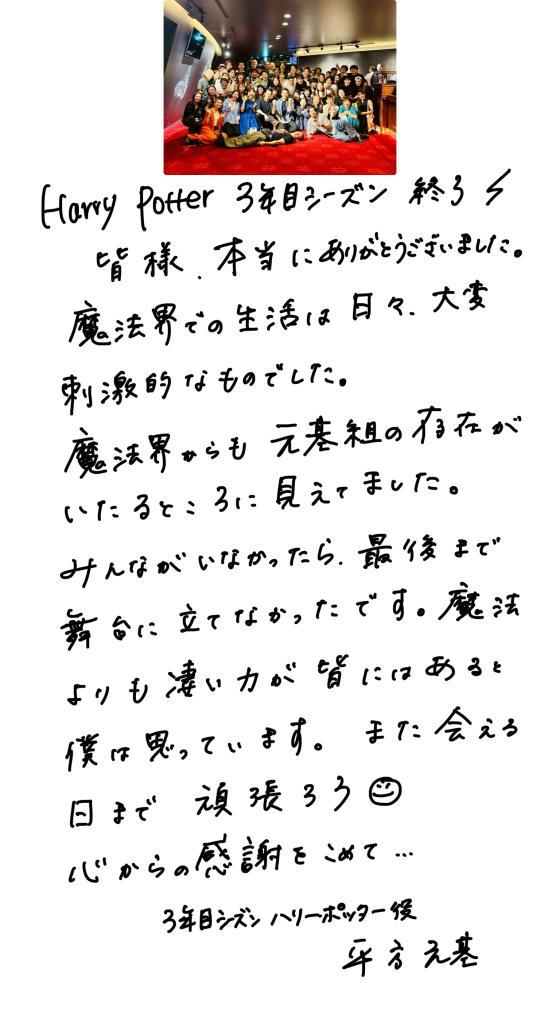 Harry Potter 3年目シーズン 終了⚡
皆様、本当にありがとうございました。
魔法界での生活は日々、大変
刺激的なものでした。
魔法界からも 元基組の存在が
いたるところに見えてました。
みんながいなかったら、最後まで
舞台に立てなかったです。魔法
よりも凄い力が皆にはあると
僕は思っています。 また会える
日まで 頑張ろう☺
心からの感謝をこめて…
3年目シズン ハリーポッター役
平方元基